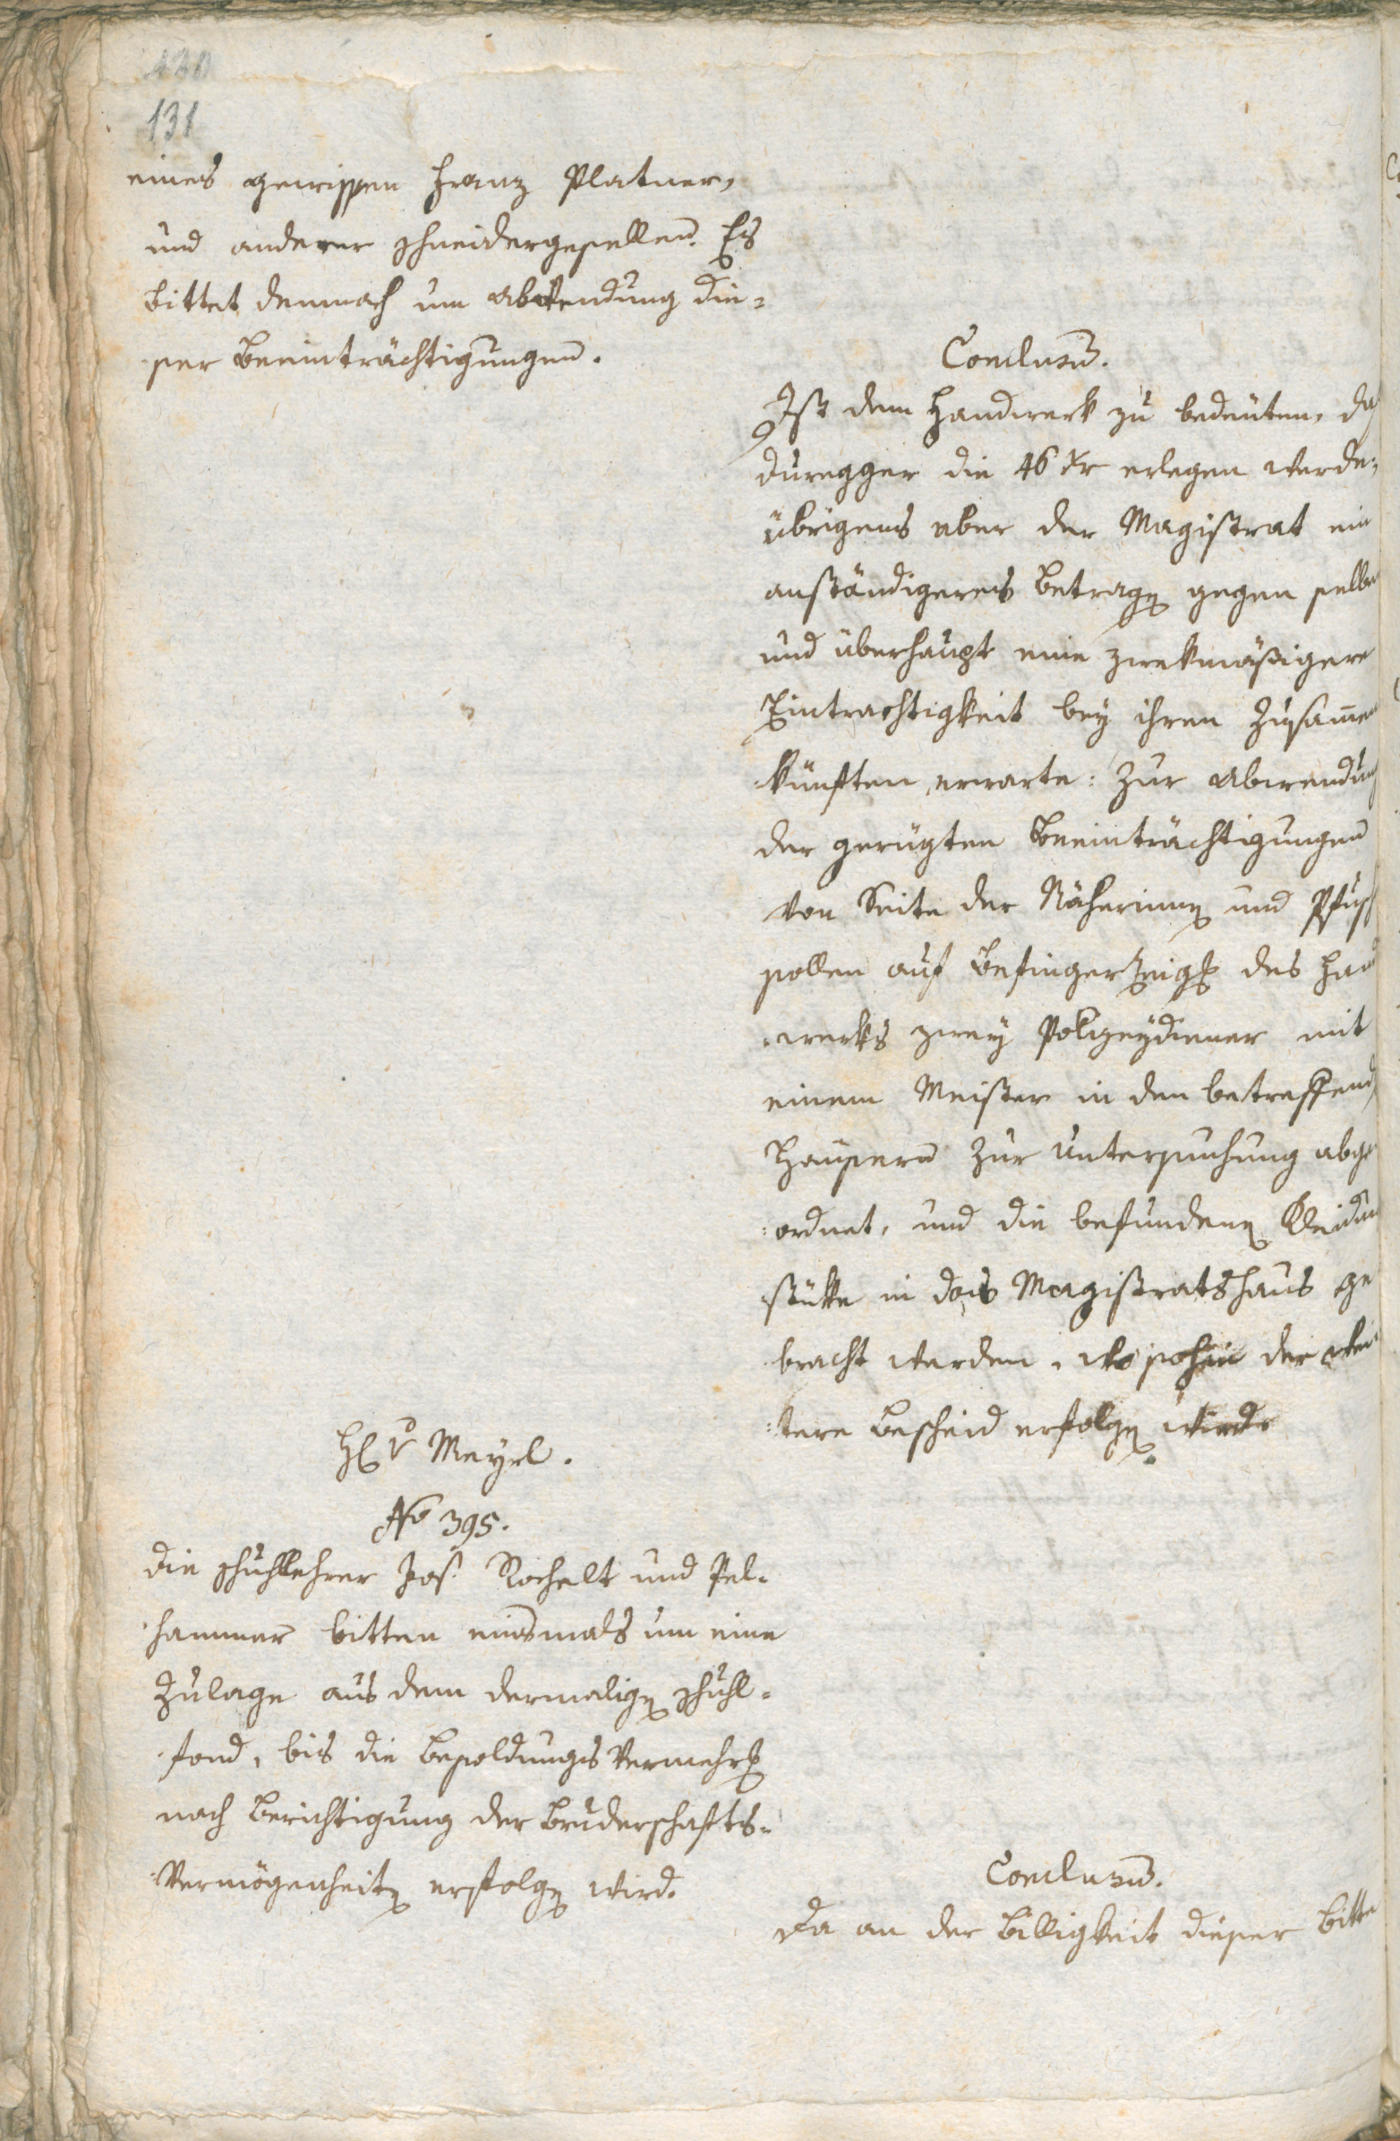 131
eines gewissen Franz Platner,
und anderer Schneidergesellen. Es
bittet demnach um Abwendung die-
ser Beeinträchtigungen.
Conclusum.
Ist dem Handwerk zu bedeuten, daß
Duregger die 46 Xr erlegen werde,
übrigens aber der Magistrat ein
anständigeres Betragen gegen selben
und überhaupt eine zwekmäßigere
Einträchtigkeit bey ihren Zusammen
künften erwarte: Zur Abwendung
der gerügten Beeinträchtigungen
von Seite der Näherinnen und Pfusch
sollen auf Befingerzeigen des Hand
werks zwey Polizeydiener mit
einem Meister in den betreffenden
Häusern zur Untersuchung abge
ordnet, und die befundenen Kleidun
stükke in das Magistratshaus ge
bracht werden, wo sohin der wei
tere Bescheid erfolgen wird.
H v Meyrl.
No 395.
Die Schullehrer Jos. Rochelt und Pel-
hammer bitten einsmals um eine
Zulage aus dem dermaligen Schuhl-
fond, bis die Besoldungs Vermehrung
nach Berichtigung der Bruderschafts-
Vermögenheiten erfolgen wird.
Conclusum.
Da an der Billigkeit dieser Bitte